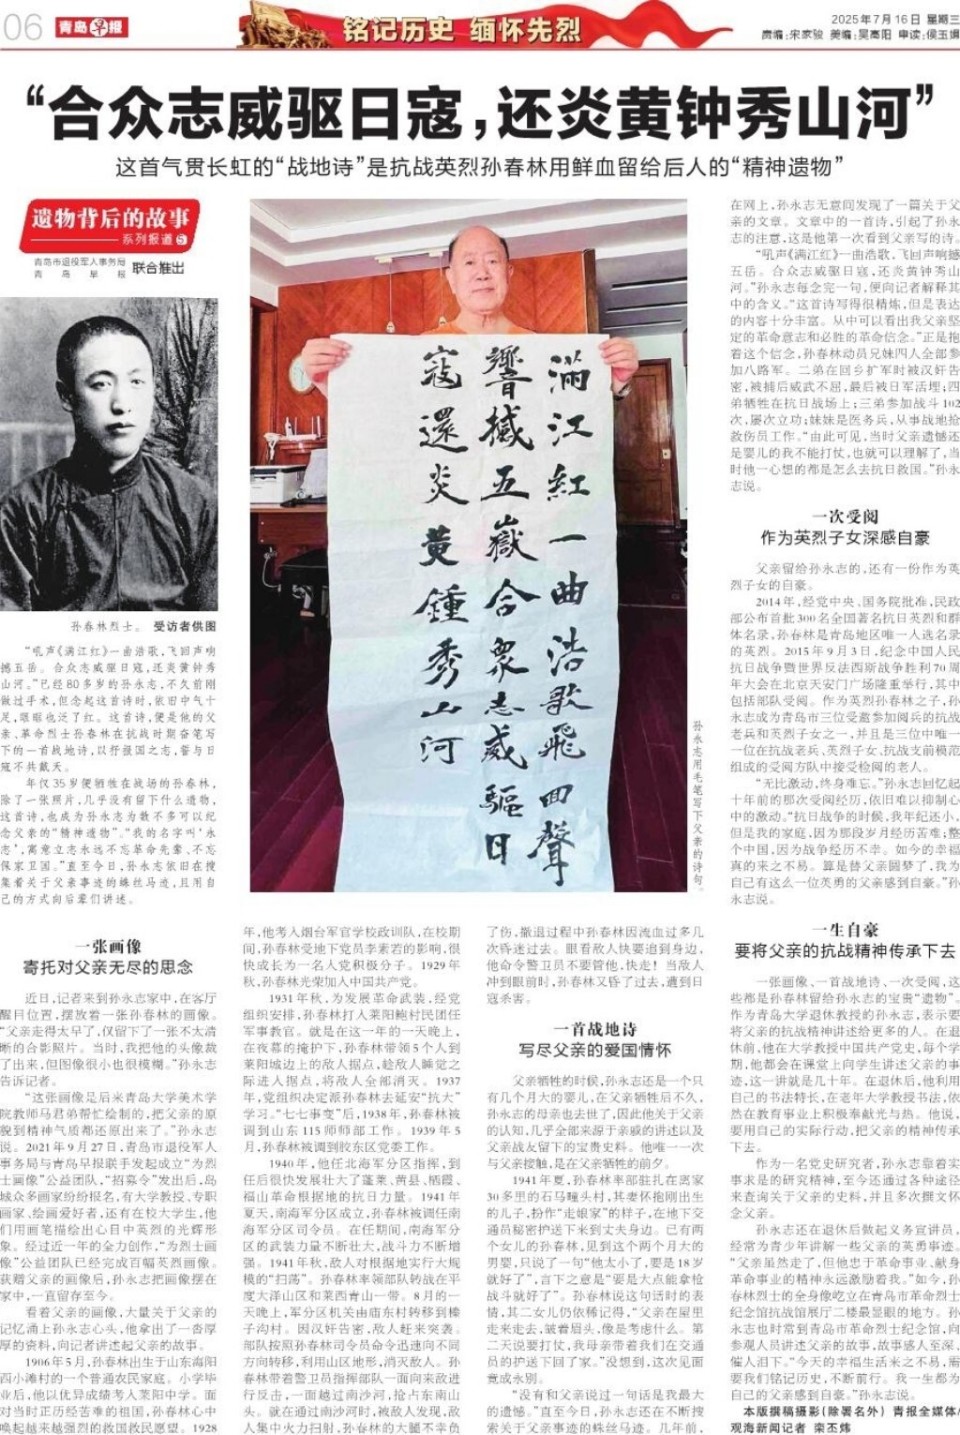 06
青岛早报
铭记历史 缅怀先烈
2025年7月16日 星期三
责编:宋家骏 美编:吴高阳 审读:侯玉娟
“合众志威驱日寇,还炎黄钟秀山河”
这首气贯长虹的“战地诗”是抗战英烈孙春林用鲜血留给后人的“精神遗物”
遗物背后的故事
系列报道⑤
青岛市退役军人事务局
青岛早报
联合推出
孙春林烈士。 受访者供图
“吼声《满江红》一曲浩歌,飞回声响
撼五岳。合众志威驱日寇,还炎黄钟秀
山河。”已经80多岁的孙永志,不久前刚
做过手术,但念起这首诗时,依旧中气十
足,眼眶也泛了红。这首诗,便是他的父
亲、革命烈士孙春林在抗战时期奋笔写
下的一首战地诗,以抒报国之志,誓与日
寇不共戴天。
年仅35岁便牺牲在战场的孙春林,
除了一张照片,几乎没有留下什么遗物,
这首诗,也成为孙永志为数不多可以纪
念父亲的“精神遗物”。“我的名字叫‘永
志’,寓意立志永远不忘革命先辈、不忘
保家卫国。”直至今日,孙永志依旧在搜
集着关于父亲事迹的蛛丝马迹,且用自
己的方式向后辈们讲述。
满江红一曲浩歌飞回声
響撼五嶽合衆志威驅日
寇還炎黄鍾秀山河
孙永志用毛笔写下父亲的诗句。
一张画像
寄托对父亲无尽的思念
近日,记者来到孙永志家中,在客厅
醒目位置,摆放着一张孙春林的画像。
“父亲走得太早了,仅留下了一张不太清
晰的合影照片。当时,我把他的头像裁
了出来,但图像很小也很模糊。”孙永志
告诉记者。
“这张画像是后来青岛大学美术学
院教师马君弟帮忙绘制的,把父亲的原
貌到精神气质都还原出来了。”孙永志
说。2021年9月27日,青岛市退役军人
事务局与青岛早报联手发起成立“为烈
士画像”公益团队,“招募令”发出后,岛
城众多画家纷纷报名,有大学教授、专职
画家、绘画爱好者,还有在校大学生,他
们用画笔描绘出心目中英烈的光辉形
象。经过近一年的全力创作,“为烈士画
像”公益团队已经完成百幅英烈画像。
获赠父亲的画像后,孙永志把画像摆在
家中,一直留存至今。
看着父亲的画像,大量关于父亲的
记忆涌上孙永志心头,他拿出了一沓厚
厚的资料,向记者讲述起父亲的故事。
1906年5月,孙春林出生于山东海阳
西小滩村的一个普通农民家庭。小学毕
业后,他以优异成绩考入莱阳中学。面
对当时正历经苦难的祖国,孙春林心中
唤起越来越强烈的救国救民愿望。1928
年,他考入烟台军官学校政训队,在校期
间,孙春林受地下党员李素若的影响,很
快成长为一名入党积极分子。1929年
秋,孙春林光荣加入中国共产党。
1931年秋,为发展革命武装,经党
组织安排,孙春林打入莱阳鲍村民团任
军事教官。就是在这一年的一天晚上,
在夜幕的掩护下,孙春林带领5个人到
莱阳城边上的敌人据点,趁敌人睡觉之
际进入据点,将敌人全部消灭。1937
年,党组织决定派孙春林去延安“抗大”
学习。“七七事变”后,1938年,孙春林被
调到山东115师师部工作。1939年5
月,孙春林被调到胶东区党委工作。
1940年,他任北海军分区指挥,到
任后很快发展壮大了蓬莱、黄县、栖霞、
福山革命根据地的抗日力量。1941年
夏天,南海军分区成立,孙春林被调任南
海军分区司令员。在任期间,南海军分
区的武装力量不断壮大,战斗力不断增
强。1941年秋,敌人对根据地实行大规
模的“扫荡”。孙春林率领部队转战在平
度大泽山区和莱西青山一带。8月的一
天晚上,军分区机关由庙东村转移到榛
子沟村。因汉奸告密,敌人赶来突袭。
部队按照孙春林司令员命令迅速向不同
方向转移,利用山区地形,消灭敌人。孙
春林带着警卫员指挥部队一面向来敌进
行反击,一面越过南沙河,抢占东南山
头。就在通过南沙河时,被敌人发现,敌
人集中火力扫射,孙春林的大腿不幸负
了伤,撤退过程中孙春林因流血过多几
次昏迷过去。眼看敌人快要追到身边,
他命令警卫员不要管他,快走!当敌人
冲到眼前时,孙春林又昏了过去,遭到日
寇杀害。
一首战地诗
写尽父亲的爱国情怀
父亲牺牲的时候,孙永志还是一个只
有几个月大的婴儿,在父亲牺牲后不久,
孙永志的母亲也去世了,因此他关于父亲
的认知,几乎全部来源于亲戚的讲述以及
父亲战友留下的宝贵史料。他唯一一次
与父亲接触,是在父亲牺牲的前夕。
1941年夏,孙春林率部驻扎在离家
30多里的石马疃头村,其妻怀抱刚出生
的儿子,扮作“走娘家”的样子,在地下交
通员秘密护送下来到丈夫身边。已有两
个女儿的孙春林,见到这个两个月大的
男婴,只说了一句“他太小了,要是18岁
就好了”,言下之意是“要是大点能拿枪
战斗就好了”。孙春林说这句话时的表
情,其二女儿仍依稀记得,“父亲在屋里
走来走去,皱着眉头,像是考虑什么。第
二天说要打仗,我母亲带着我们在交通
员的护送下回了家。”没想到,这次见面
竟成永别。
“没有和父亲说过一句话是我最大
的遗憾。”直至今日,孙永志还在不断搜
索关于父亲事迹的蛛丝马迹。几年前,
在网上,孙永志无意间发现了一篇关于父
亲的文章。文章中的一首诗,引起了孙永
志的注意,这是他第一次看到父亲写的诗。
“吼声《满江红》一曲浩歌,飞回声响撼
五岳。合众志威驱日寇,还炎黄钟秀山
河。”孙永志每念完一句,便向记者解释其
中的含义。“这首诗写得很精炼,但是表达
的内容十分丰富。从中可以看出我父亲坚
定的革命意志和必胜的革命信念。”正是抱
着这个信念,孙春林动员兄妹四人全部参
加八路军。二弟在回乡扩军时被汉奸告
密,被捕后威武不屈,最后被日军活埋;四
弟牺牲在抗日战场上;三弟参加战斗102
次,屡次立功;妹妹是医务兵,从事战地抢
救伤员工作。“由此可见,当时父亲遗憾还
是婴儿的我不能打仗,也就可以理解了,当
时他一心想的都是怎么去抗日救国。”孙永
志说。
一次受阅
作为英烈子女深感自豪
父亲留给孙永志的,还有一份作为英
烈子女的自豪。
2014年,经党中央、国务院批准,民政
部公布首批300名全国著名抗日英烈和群
体名录,孙春林是青岛地区唯一人选名录
的英烈。2015年9月3日,纪念中国人民
抗日战争暨世界反法西斯战争胜利70周
年大会在北京天安门广场隆重举行,其中
包括部队受阅。作为英烈孙春林之子,孙
永志成为青岛市三位受邀参加阅兵的抗战
老兵和英烈子女之一,并且是三位中唯一
一位在抗战老兵、英烈子女、抗战支前模范
组成的受阅方队中接受检阅的老人。
“无比激动,终身难忘。”孙永志回忆起
十年前的那次受阅经历,依旧难以抑制心
中的激动。“抗日战争的时候,我年纪还小,
但是我的家庭,因为那段岁月经历苦难;整
个中国,因为战争经历不幸。如今的幸福
真的来之不易。算是替父亲圆梦了,我为
自己有这么一位英勇的父亲感到自豪。”孙
永志说。
一生自豪
要将父亲的抗战精神传承下去
一张画像、一首战地诗、一次受阅,这
些都是孙春林留给孙永志的宝贵“遗物”。
作为青岛大学退休教授的孙永志,表示要
将父亲的抗战精神讲述给更多的人。在退
休前,他在大学教授中国共产党史,每个学
期,他都会在课堂上向学生讲述父亲的事
迹,这一讲就是几十年。在退休后,他利用
自己的书法特长,在老年大学教授书法,依
然在教育事业上积极奉献光与热。他说,
要用自己的实际行动,把父亲的精神传承
下去。
作为一名党史研究者,孙永志靠着实
事求是的研究精神,至今还通过各种途径
来查询关于父亲的史料,并且多次撰文怀
念父亲。
孙永志还在退休后做起义务宣讲员,
经常为青少年讲解一些父亲的英勇事迹。
“父亲虽然走了,但他忠于革命事业、献身
革命事业的精神永远激励着我。”如今,孙
春林烈士的全身像屹立在青岛市革命烈士
纪念馆抗战馆展厅二楼最显眼的地方。孙
永志也时常到青岛市革命烈士纪念馆,向
参观人员讲述父亲的故事,故事感人至深,
催人泪下。“今天的幸福生活来之不易,需
要我们铭记历史,不断前行。我一生都为
自己的父亲感到自豪。”孙永志说。
本版撰稿摄影(除署名外) 青报全媒体/
观海新闻记者 栾丕炜